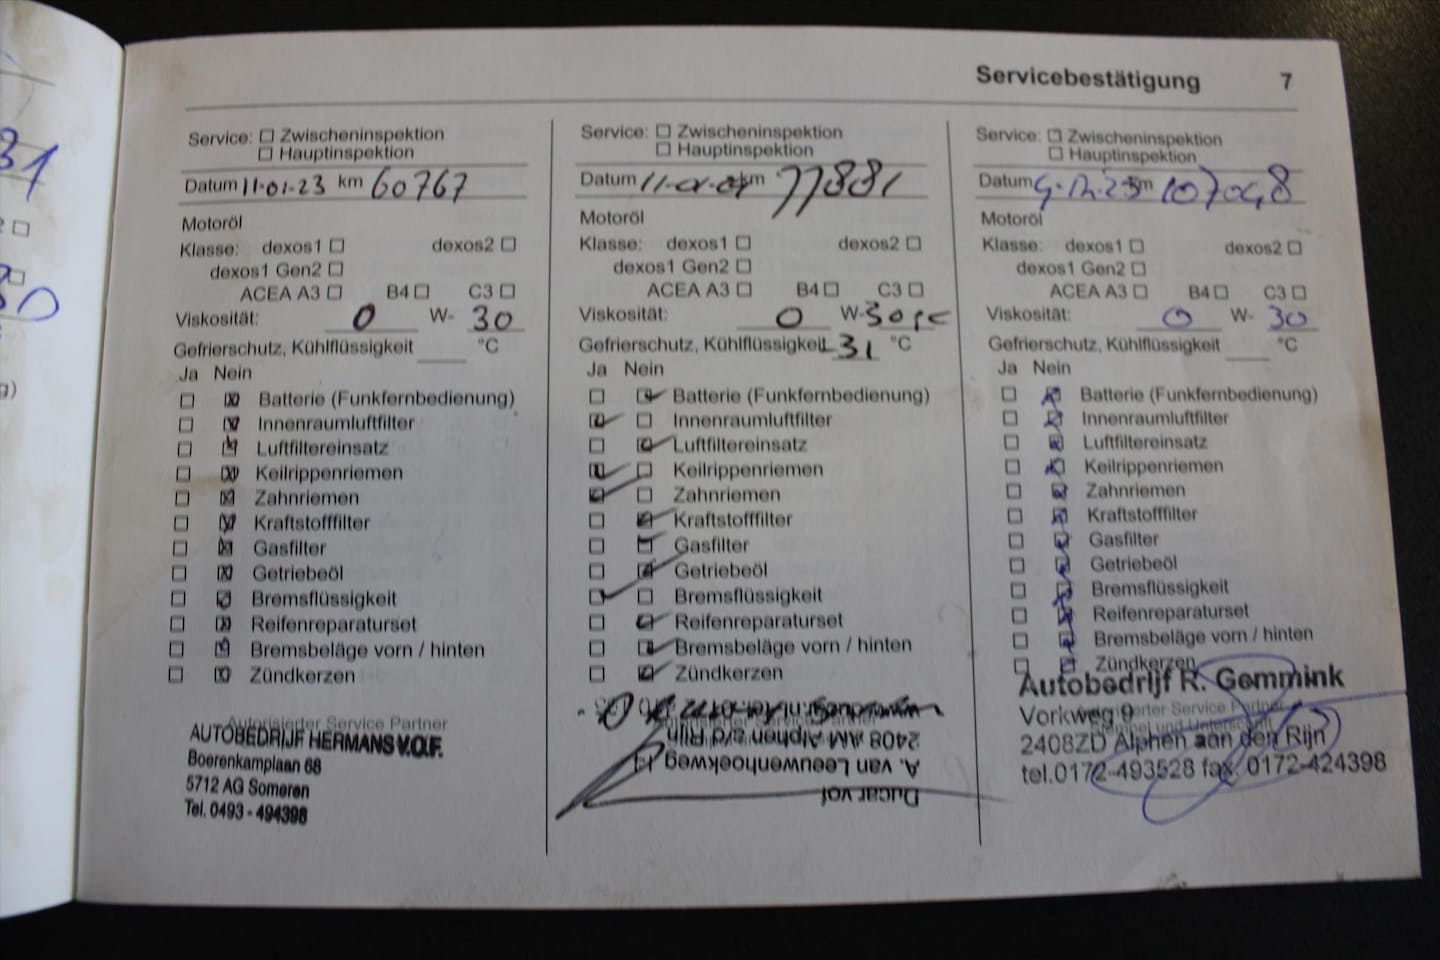 Servicebestätigung 7
Service: Zwischeninspektion
Hauptinspektion
Datum 11-01-23 km 60767
Motoröl
Klasse: dexos1 dexos2
dexos1 Gen2
ACEA A3 B4 C3
Viskosität: 0 W- 30
Gefrierschutz, Kühlflüssigkeit °C
Ja Nein
Batterie (Funkfernbedienung)
Innenraumluftfilter
Luftfiltereinsatz
Keilrippenriemen
Zahnriemen
Kraftstofffilter
Gasfilter
Getriebeöl
Bremsflüssigkeit
Reifenreparaturset
Bremsbeläge vorn / hinten
Zündkerzen
Autorisierter Service Partner
AUTOBEDRIJF HERMANS V.O.F.
Boerenkamplaan 68
5712 AG Someren
Tel. 0493 - 494398
Service: Zwischeninspektion
Hauptinspektion
Datum km 77881
Motoröl
Klasse: dexos1 dexos2
dexos1 Gen2
ACEA A3 B4 C3
Viskosität: 0 W- 30
Gefrierschutz, Kühlflüssigkeit -31 °C
Ja Nein
Batterie (Funkfernbedienung)
Innenraumluftfilter
Luftfiltereinsatz
Keilrippenriemen
Zahnriemen
Kraftstofffilter
Gasfilter
Getriebeöl
Bremsflüssigkeit
Reifenreparaturset
Bremsbeläge vorn / hinten
Zündkerzen
Ducar vof
A. van Leeuwenhoekweg
2408 AM Alphen a/d Rijn
Service: Zwischeninspektion
Hauptinspektion
Datum km 107048
Motoröl
Klasse: dexos1 dexos2
dexos1 Gen2
ACEA A3 B4 C3
Viskosität: 0 W- 30
Gefrierschutz, Kühlflüssigkeit °C
Ja Nein
Batterie (Funkfernbedienung)
Innenraumluftfilter
Luftfiltereinsatz
Keilrippenriemen
Zahnriemen
Kraftstofffilter
Gasfilter
Getriebeöl
Bremsflüssigkeit
Reifenreparaturset
Bremsbeläge vorn / hinten
Zündkerzen
Autobedrijf R. Gemmink
Vorkweg 9
2408ZD Alphen aan den Rijn
tel.0172-493528 fax. 0172-424398